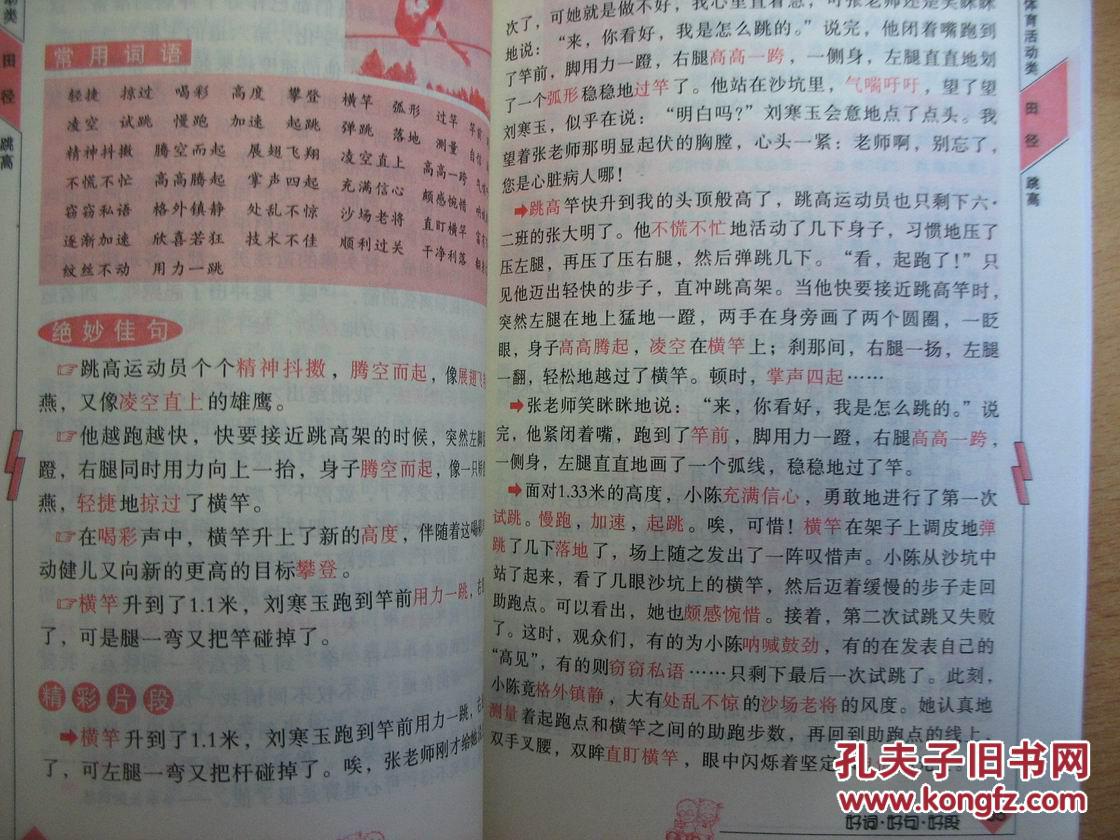 动类
田
径
跳高
常用词语
轻捷 掠过 喝彩 高度 攀登 横竿 弧形 过竿 竿前
凌空 试跳 慢跑 加速 起跳 弹跳 落地 测量
精神抖擞 腾空而起 展翅飞翔 凌空直上 高高一跨
不慌不忙 高高腾起 掌声四起 充满信心 颇感惋惜
窃窃私语 格外镇静 处乱不惊 沙场老将 直盯横竿
逐渐加速 欣喜若狂 技术不佳 顺利过关 干净利落
纹丝不动 用力一跳
绝妙佳句
☞跳高运动员个个精神抖擞，腾空而起，像展翅飞
燕，又像凌空直上的雄鹰。
☞他越跑越快，快要接近跳高架的时候，突然左脚
蹬，右腿同时用力向上一抬，身子腾空而起，像一只
燕，轻捷地掠过了横竿。
☞在喝彩声中，横竿升上了新的高度，伴随着这喝
动健儿又向新的更高的目标攀登。
☞横竿升到了1.1米，刘寒玉跑到竿前用力一跳，
了，可是腿一弯又把竿碰掉了。
精彩片段
➡横竿升到了1.1米，刘寒玉跑到竿前用力一跳，
了，可左腿一弯又把杆碰掉了。唉，张老师刚才给她
次了，可她就是做不好，我心里直着急，可张老师还是笑眯眯
地说：“来，你看好，我是怎么跳的。”说完，他闭着嘴跑到
了竿前，脚用力一蹬，右腿高高一跨，一侧身，左腿直直地划
了一个弧形稳稳地过竿了。他站在沙坑里，气喘吁吁，望了望
刘寒玉，似乎在说：“明白吗？”刘寒玉会意地点了点头。我
望着张老师那明显起伏的胸膛，心头一紧：老师啊，别忘了，
您是心脏病人哪！
➡跳高竿快升到我的头顶般高了，跳高运动员也只剩下六·
二班的张大明了。他不慌不忙地活动了几下身子，习惯地压了
压左腿，再压了压右腿，然后弹跳几下。“看，起跑了！”只
见他迈出轻快的步子，直冲跳高架。当他快要接近跳高竿时，
突然左腿在地上猛地一蹬，两手在身旁画了两个圆圈，一眨
眼，身子高高腾起，凌空在横竿上；刹那间，右腿一扬，左腿
一翻，轻松地越过了横竿。顿时，掌声四起……
➡张老师笑眯眯地说：“来，你看好，我是怎么跳的。”说
完，他紧闭着嘴，跑到了竿前，脚用力一蹬，右腿高高一跨，
一侧身，左腿直直地画了一个弧线，稳稳地过了竿。
➡面对1.33米的高度，小陈充满信心，勇敢地进行了第一次
试跳。慢跑，加速，起跳。唉，可惜！横竿在架子上调皮地弹
跳了几下落地了，场上随之发出了一阵叹惜声。小陈从沙坑中
站了起来，看了几眼沙坑上的横竿，然后迈着缓慢的步子走回
助跑点。可以看出，她也颇感惋惜。接着，第二次试跳又失败
了。这时，观众们，有的为小陈呐喊鼓劲，有的在发表自己的
“高见”，有的则窃窃私语……只剩下最后一次试跳了。此刻，
小陈竟格外镇静，大有处乱不惊的沙场老将的风度。她认真地
测量着起跑点和横竿之间的助跑步数，再回到助跑点的线上，
双手叉腰，双眸直盯横竿，眼中闪烁着坚定
体育活动类
田
径
跳高
好词·好句·好段
孔夫子旧书网
www.kongfz.com